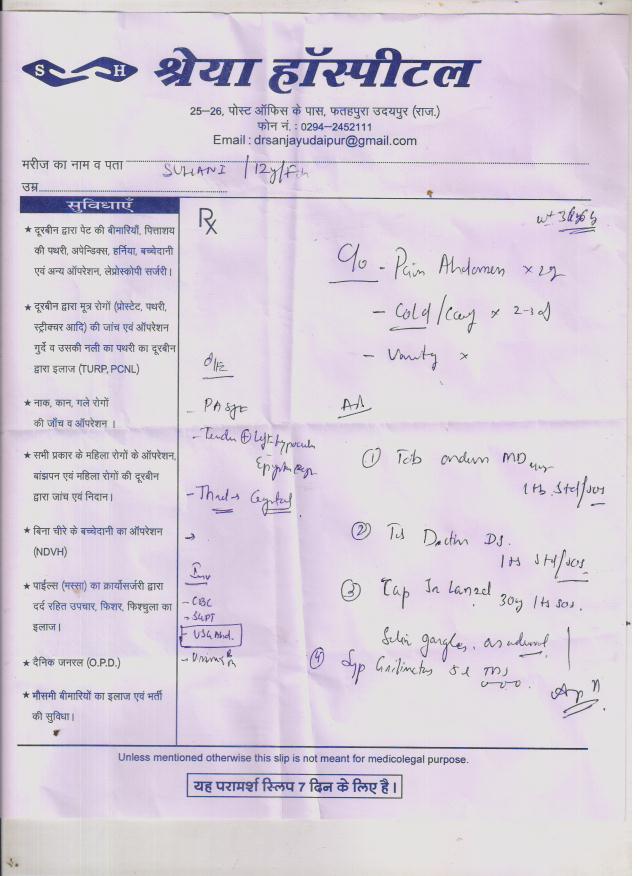 S H श्रेया हॉस्पीटल
25–26, पोस्ट ऑफिस के पास, फतहपुरा उदयपुर (राज.)
फोन नं. : 0294–2452111
Email : drsanjayudaipur@gmail.com
मरीज का नाम व पता SUHANI / 12y/
उम्र
सुविधाएँ
★ दूरबीन द्वारा पेट की बीमारियाँ, पित्ताशय
की पथरी, अपेन्डिक्स, हर्निया, बच्चेदानी
एवं अन्य ऑपरेशन, लेप्रोस्कोपी सर्जरी।
★ दूरबीन द्वारा मूत्र रोगों (प्रोस्टेट, पथरी,
स्ट्रीक्चर आदि) की जांच एवं ऑपरेशन
गुर्दे व उसकी नली का पथरी का दूरबीन
द्वारा इलाज (TURP, PCNL)
★ नाक, कान, गले रोगों
की जाँच व ऑपरेशन ।
★ सभी प्रकार के महिला रोगों के ऑपरेशन,
बांझपन एवं महिला रोगों की दूरबीन
द्वारा जांच एवं निदान।
★ बिना चीरे के बच्चेदानी का ऑपरेशन
(NDVH)
★ पाईल्स (मस्सा) का क्रार्योसर्जरी द्वारा
दर्द रहित उपचार, फिशर, फिश्चुला का
इलाज।
★ दैनिक जनरल (O.P.D.)
★ मौसमी बीमारियों का इलाज एवं भर्ती
की सुविधा।
Rx
wt
c/o - Pain Abdomen x
- Cold / x 2-3d
- x
O/E
- PA
- Tender ⊕ Left
-
Inv
- CBC
- SGPT
- USG Abd.
- Urine
Adv
① Tab MD
1 tab std/sos
② Tab DS.
1 tab std/sos
③ Cap 30 1 tab sos.
gargles.
④ Syp 5ml TDS
Unless mentioned otherwise this slip is not meant for medicolegal purpose.
यह परामर्श स्लिप 7 दिन के लिए है।